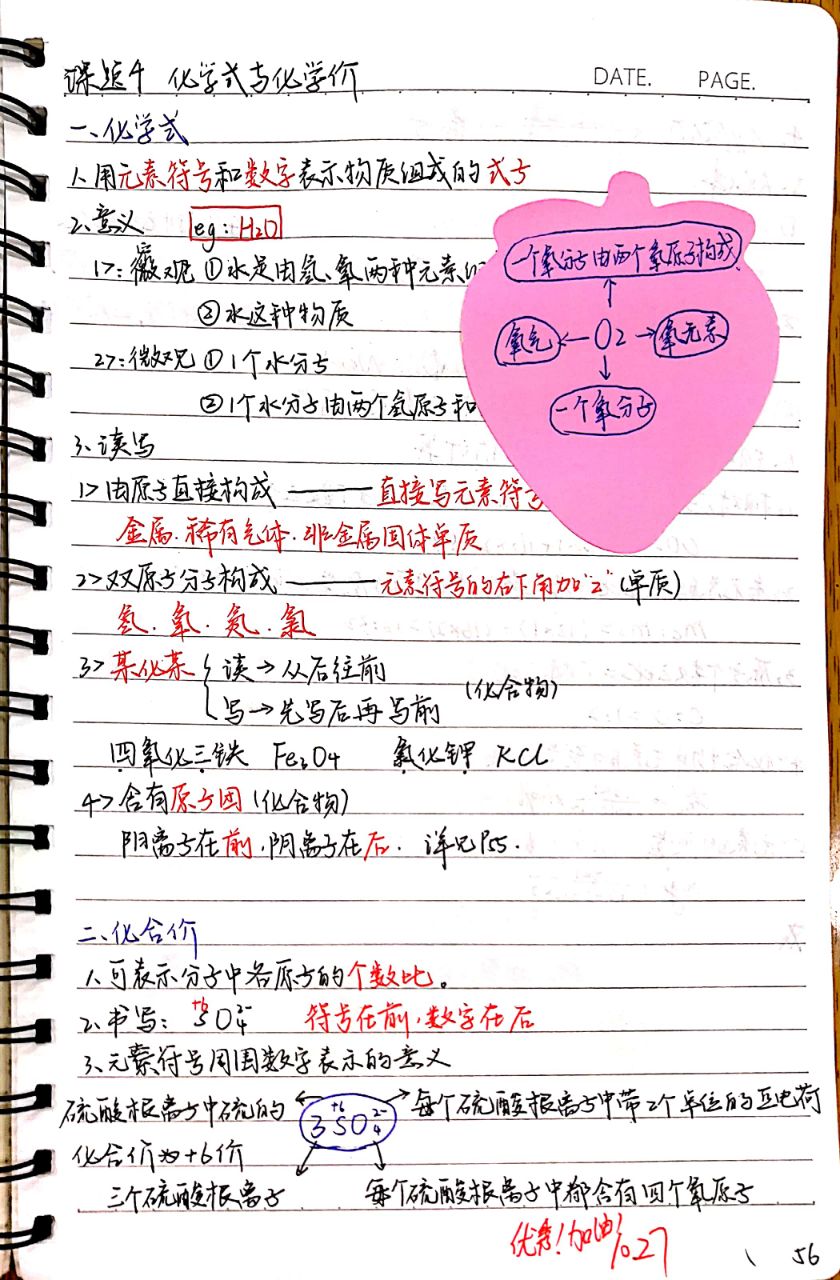 课题4 化学式与化学价
DATE. PAGE.
一、化学式
1、用元素符号和数字表示物质组成的式子
2、意义 eg: H2O
1>: 观 ①水是由氢、氧两种元素的
②水这种物质
2>: 微观 ①1个水分子
②1个水分子由两个氢原子和
一个氧分子由两个氧原子构成
氧气 ← O2 → 氧元素
一个氧分子
3、读写
1> 由原子直接构成 —— 直接写元素符号
金属、稀有气体、非金属固体单质
2> 双原子分子构成 —— 元素符号的右下角加“2”(单质)
氢、氧、氮、氯
3> 某化某 { 读→从后往前
写→先写后再写前 (化合物)
四氧化三铁 Fe3O4 氯化钾 KCl
4> 含有原子团(化合物)
阴离子在前,阴离子在后. 详见P55.
二、化合价
1、可表示分子中各原子的个数比。
2、书写: +6 SO4 2- 符号在前,数字在后
3、元素符号周围数字表示的意义
硫酸根离子中硫的
化合价为+6价
3 +6 SO4 2-
每个硫酸根离子中带2个单位的正电荷
三个硫酸根离子 每个硫酸根离子中都含有四个氧原子
优秀!加油! 10.27
56